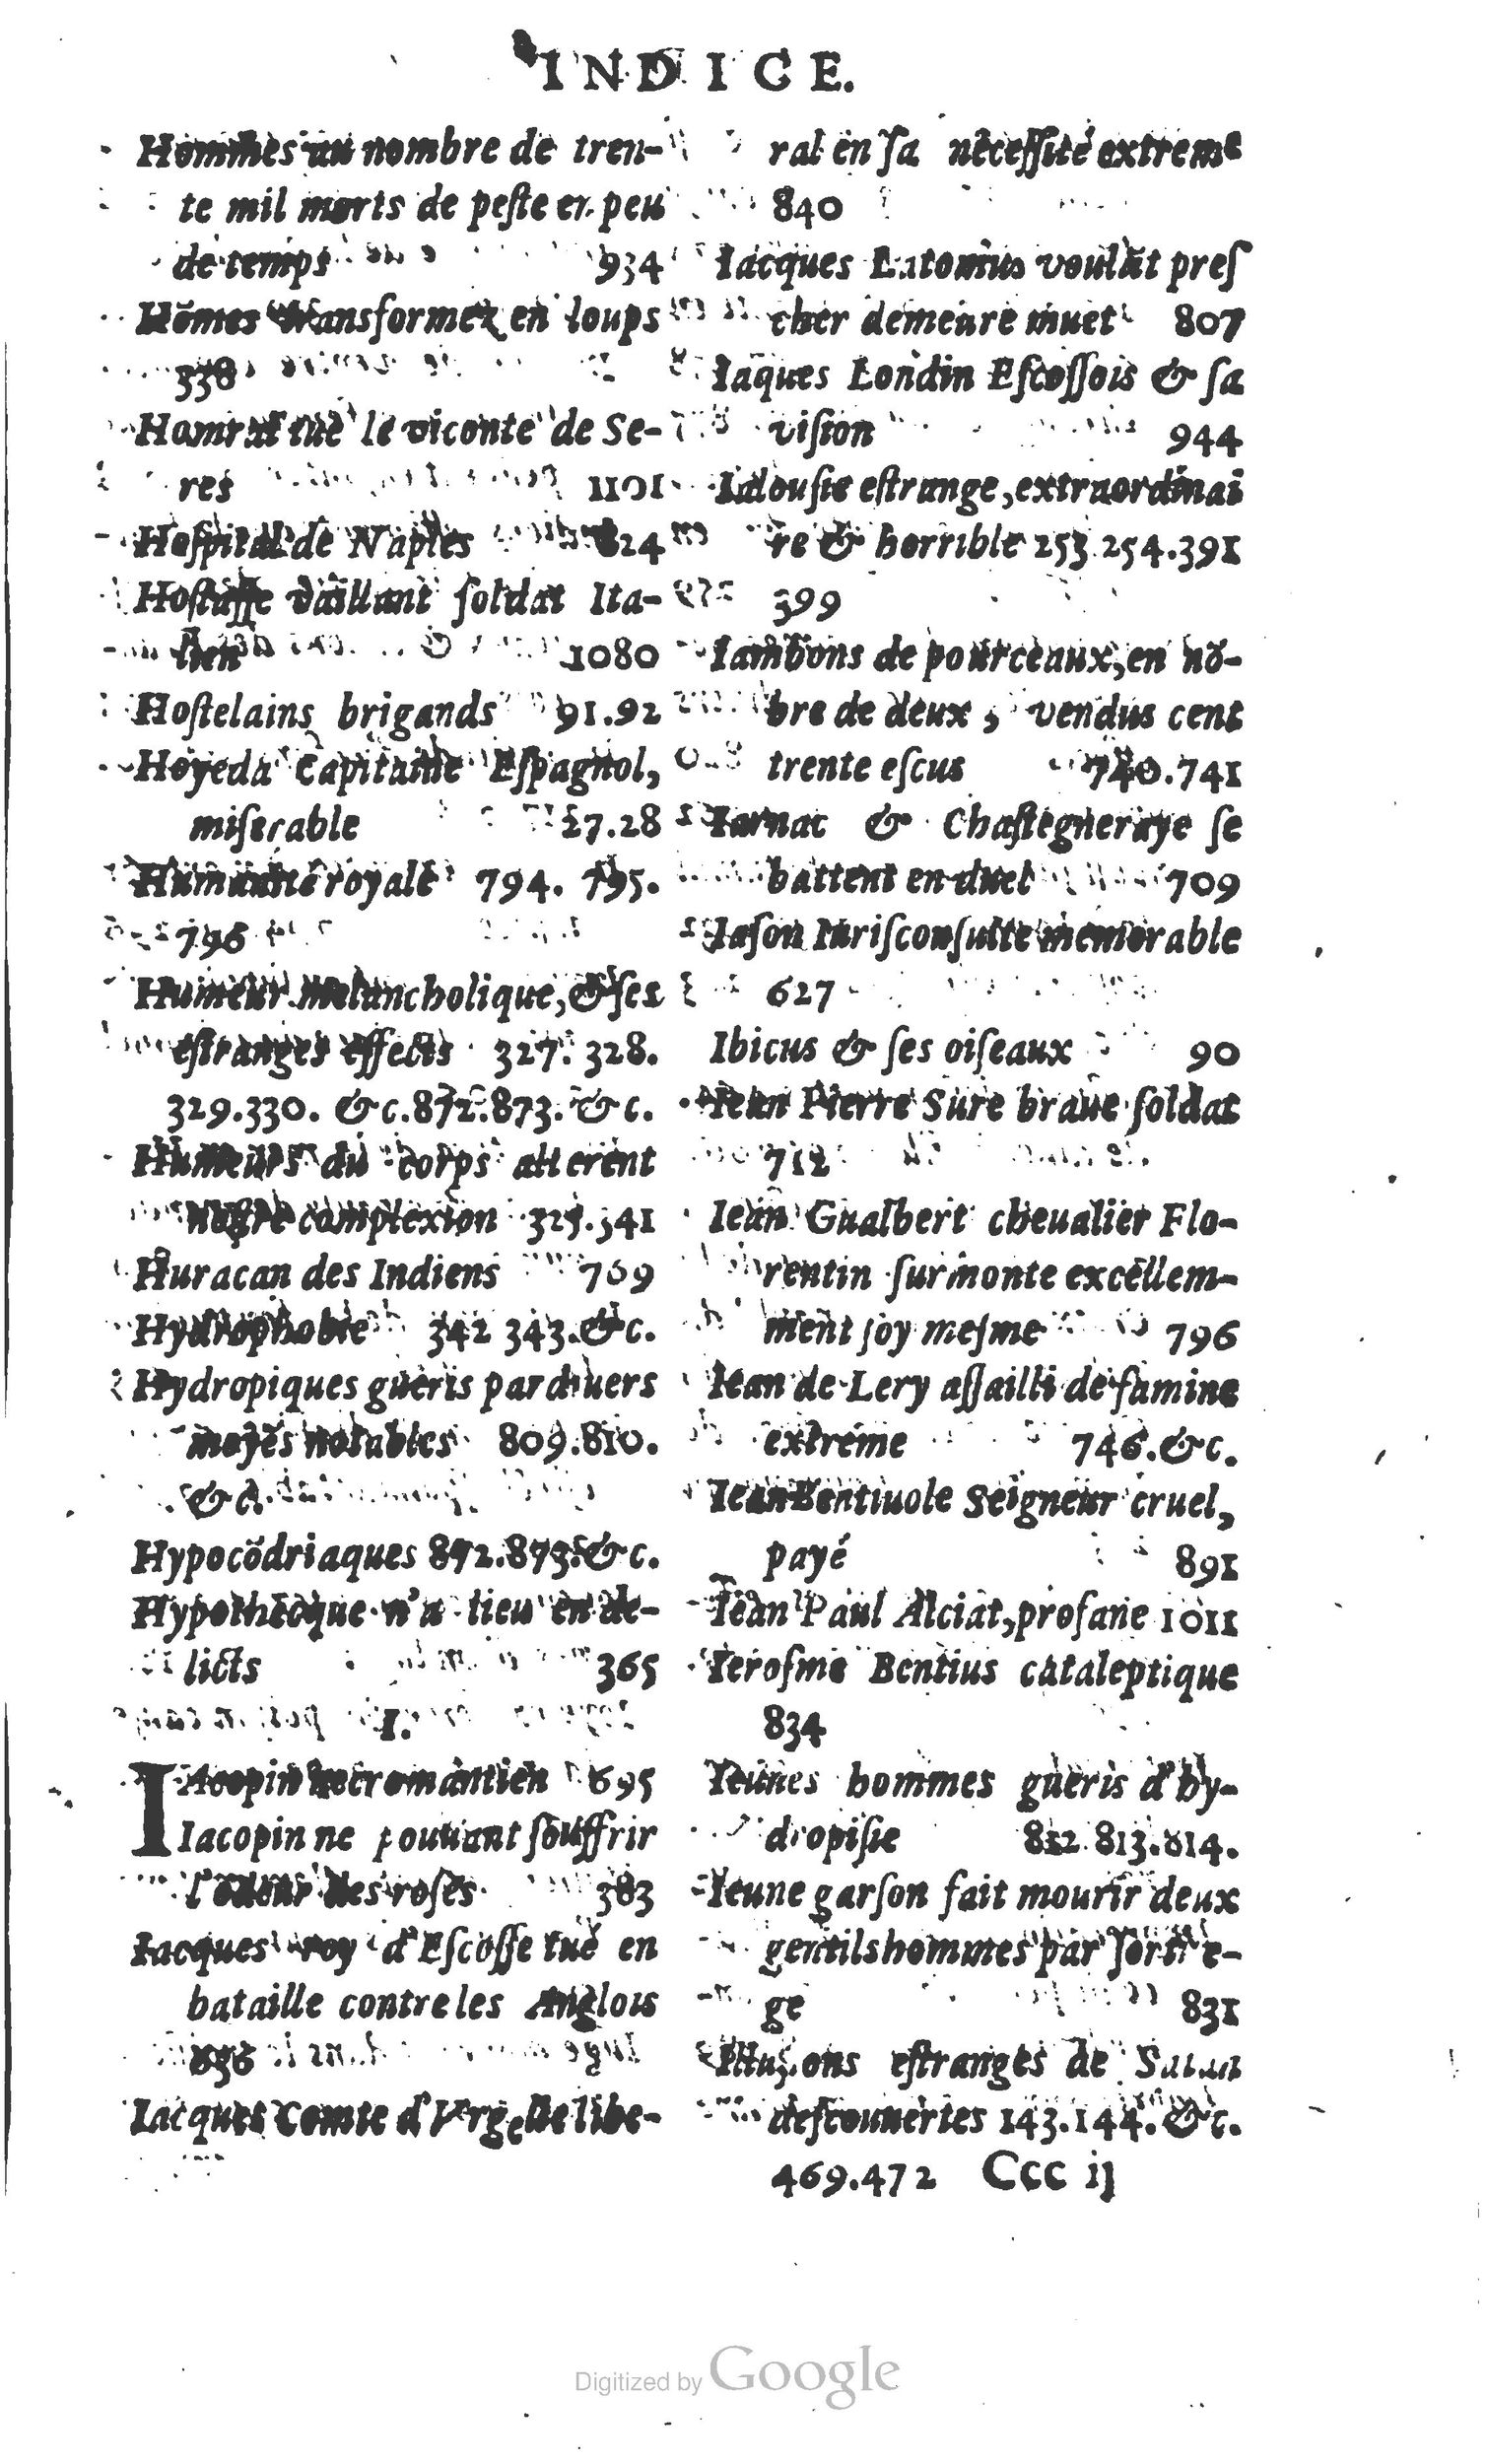 INDICE.
Hommes au nombre de tren-
te mil morts de peste en peu
de temps 934
Hõmes transformez en loups
338
Homrat tué le viconte de Se-
res 1101
Hospital de Naples 824
Hostasse vaillant soldat Ita-
lien 1080
Hostelains brigands 91.92
Hoyeda Capitaine Espagnol,
miserable 27.28
Humanité royale 794. 795.
796
Humeur melancholique, & ses
estranges effects 327. 328.
329.330. &c. 872.873. &c.
Humeurs du corps alterent
nostre complexion 325.341
Huracan des Indiens 769
Hydrophobie 342 343. &c.
Hydropiques gueris par diuers
moyẽs notables 809.810.
&c.
Hypocõdriaques 872.873. &c.
Hypothecque n'a lieu en de-
licts 365
I.
IAcopin necromantien 695
Iacopin ne pouuant souffrir
l'odeur des roses 383
Iacques roy d'Escosse tué en
bataille contre les Anglois
636
Iacques Comte d'Vrgelle libe-
ral en sa necessité extreme
840
Iacques Latomus voulãt pres
cher demeure muet 807
Iaques Londin Escossois & sa
vision 944
Ialousie estrange, extraordinai
re & horrible 253 254.391
399
Iambons de pourceaux, en nõ-
bre de deux, vendus cent
trente escus 740.741
Iarnac & Chastegneraye se
battent en duel 709
Iason Iurisconsulte memorable
627
Ibicus & ses oiseaux 90
Iean Pierre Sure braue soldat
712
Iean Gualbert cheualier Flo-
rentin surmonte excellem-
ment soy mesme 796
Iean de Lery assailli de famine
extreme 746. &c.
Iean Bentiuole Seigneur cruel,
payé 891
Iean Paul Alciat, profane 1011
Ierosme Bentius cataleptique
834
Ieunes hommes gueris d'hy-
dropisie 812 813.814.
Ieune garson fait mourir deux
gentilshommes par sortile-
ge 831
Illusions estranges de Satan
descouuertes 143.144. &c.
469.472 Ccc ij
Digitized by Google